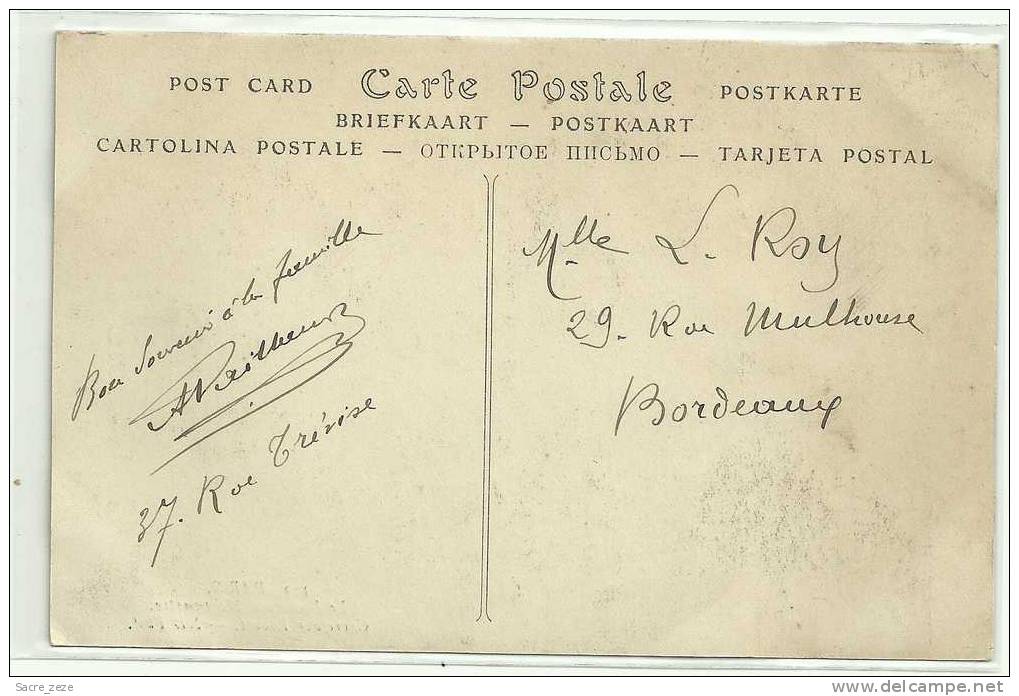 POST CARD Carte Postale POSTKARTE
BRIEFKAART — POSTKAART
CARTOLINA POSTALE — ОТКРЫТОЕ ПИСЬМО — TARJETA POSTAL
Bon Souvenir à la famille
37. Rue Trévise
Mlle L. Roy
29. Rue Mulhouse
Bordeaux
Sacre_zeze
www.delcampe.net